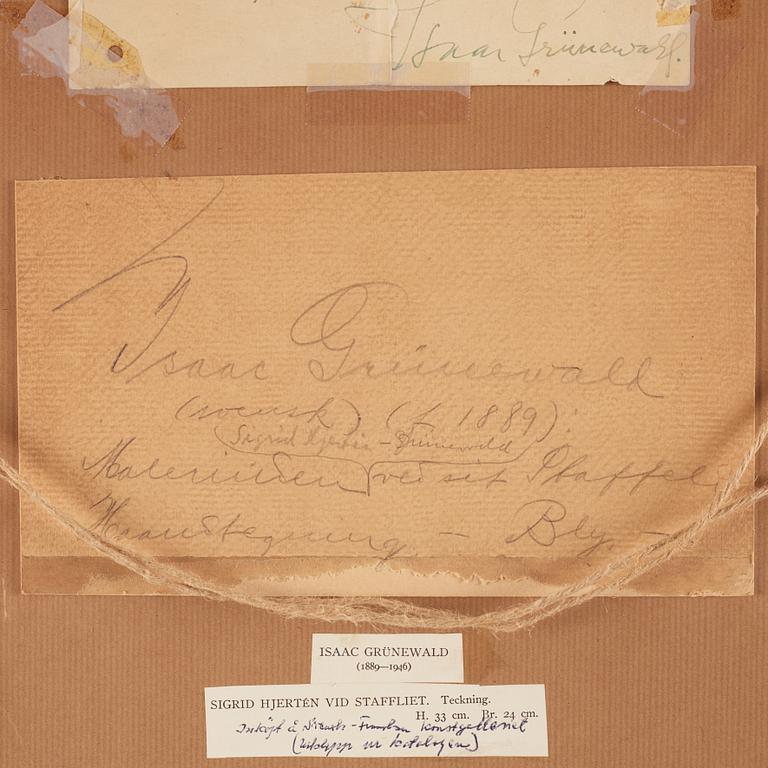 Isaac Grünewald.
Isaac Grünewald
(svensk). (f. 1889):
Sigrid Hjertén - Grünewald
Malerinden ved sit Staffeli
Haandtegning. - Bly. -
ISAAC GRÜNEWALD
(1889—1946)
SIGRID HJERTÉN VID STAFFLIET. Teckning.
H. 33 cm. Br. 24 cm.
Inköpt å Svensk-Franska Konstgalleriet
(Utklipp ur katalogen)